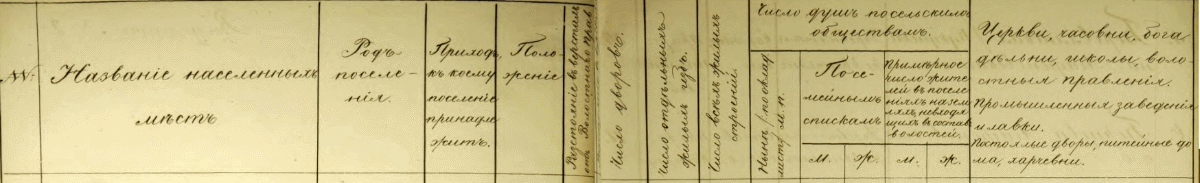 №№
Названіе населенныхъ
мѣстъ
Родъ
поселе-
нія.
Приходъ,
къ коему
поселеніе
принадле
житъ.
Поло
женіе
Разстояніе въ верстахъ
отъ Волостнаго прав
Число дворовъ.
Число отдѣльныхъ
жилыхъ избъ.
Число всѣхъ жилыхъ
строеній.
Число душъ посельскимъ
обществамъ.
Нынѣ по оклад
листу м. п.
Посе-
мейнымъ
спискамъ
м.
ж.
Примѣрное
число жите
лей въ поселе
ніяхъ на зем
ляхъ, невходя
щихъ въ составъ
волостей.
м.
ж.
Церкви, часовни, бога
дѣльни, школы, воло-
стныхъ правленія.
Промышленныхъ заведенія
и лавки.
Постоялые дворы, питейные до
ма, харчевни.